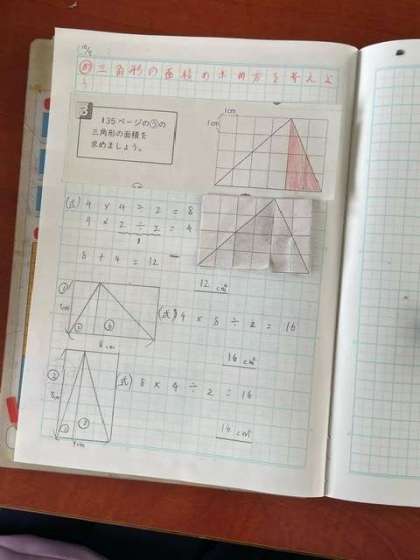 10/9
め 三角形の面積の求め方を考えよ
う
3
135ページの③の
三角形の面積を
求めましょう。
1cm
1cm
(式) 4 × 4 ÷ 2 = 8
4 × 2 ÷ 2 = 4
1
8 + 4 = 12
12 cm²
①
4cm
② ③
8cm
(式) 4 × 8 ÷ 2 = 16
16 cm²
②
8cm
① ②
4cm
(式) 8 × 4 ÷ 2 = 16
16 cm²